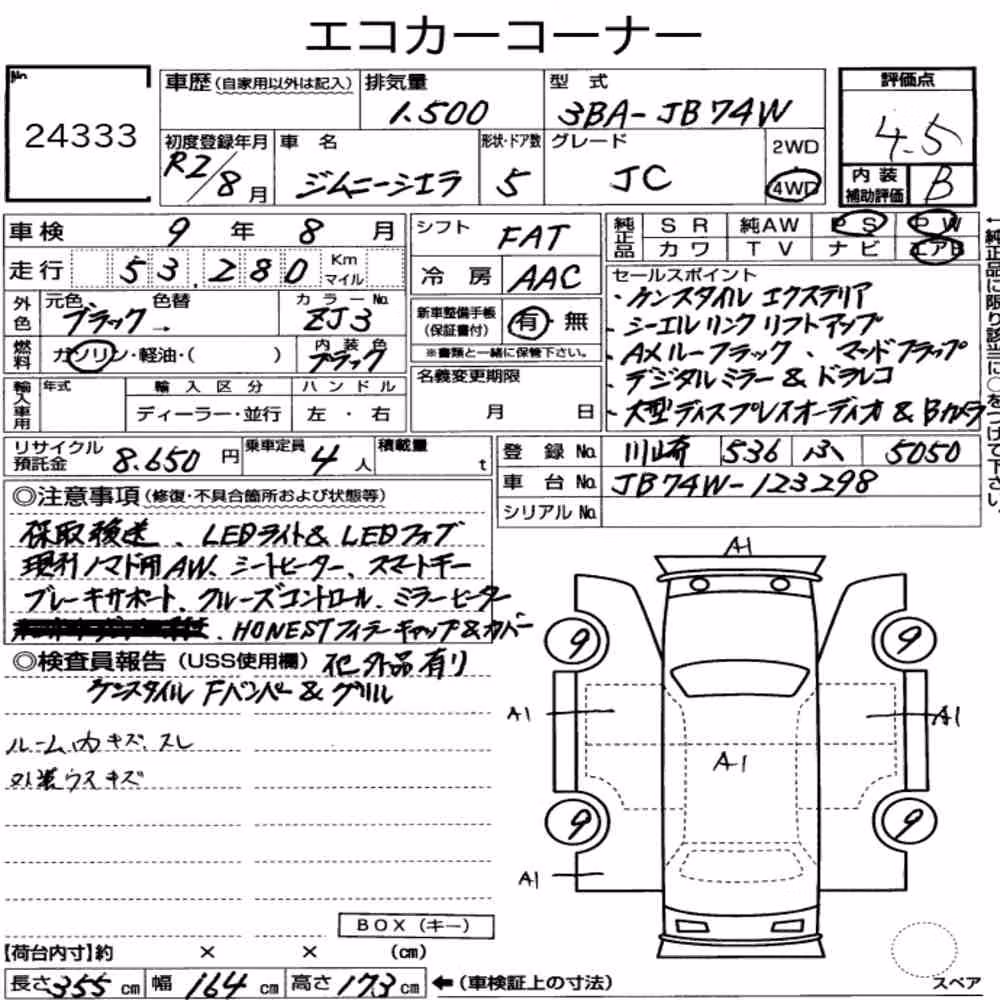 エコカーコーナー
No.
24333
車歴 (自家用以外は記入)
排気量
1.500
型式
3BA-JB74W
評価点
4.5
初度登録年月
R2/8月
車名
ジムニーシエラ
形状・ドア数
5
グレード
JC
2WD
4WD
内装
補助評価
B
車検 9年8月
シフト
FAT
純正品
SR 純AW PS PW
カワ TV ナビ エアB
走行 53,280 Km マイル
冷房 AAC
セールスポイント
・ケンスタイル エクステリア
・シーエルリンク リフトアップ
・AXルーフラック、マッドフラップ
・デジタルミラー & ドラレコ
・大型ディスプレイオーディオ & Bカメラ
外色
元色 ブラック → 色替
カラーNo.
ZJ3
新車整備手帳
(保証書付)
有・無
※書類と一緒に保管下さい。
燃料
ガソリン・軽油・( )
内装色
ブラック
名義変更期限
月 日
輸入車用
年式
輸入区分
ディーラー・並行
ハンドル
左・右
リサイクル
預託金
8.650円
乗車定員
4人
積載量
t
登録No. 川崎 536 ふ 5050
車台No. JB74W-123298
シリアルNo.
◎注意事項 (修復・不具合箇所および状態等)
保取後送、LEDライト& LEDフォグ
現引ノマド用AW、シートヒーター、スマートキー
ブレーキサポート、クルーズコントロール、ミラーヒーター
HONESTフィラーキャップ&カバー
◎検査員報告 (USS使用欄) 社外品有り
ケンスタイル Fバンパー & グリル
ルーム内キズ、スレ
外装ウスキズ
A1
9
9
A1
A1
A1
9
9
A1
BOX (キー)
【荷台内寸】約 × × (cm)
長さ355cm 幅164cm 高さ173cm
←(車検証上の寸法)
スペア
←純正品に限り該当に○をつけて下さい。